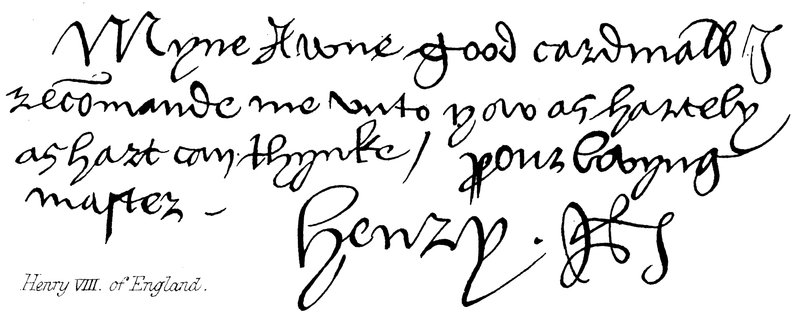 Myne Awne good cardinall I
recōmande me vnto yow as hartely
as hart can thynke / your lovyng
master –
Henry.
Henry VIII. of England.